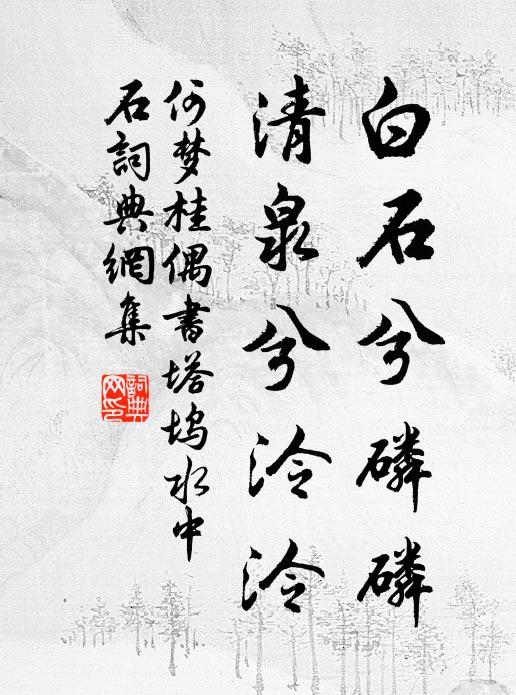 白石兮磷磷
清泉兮泠泠
何梦桂偶書塔坞水中
石詞典網集
詞典
网印